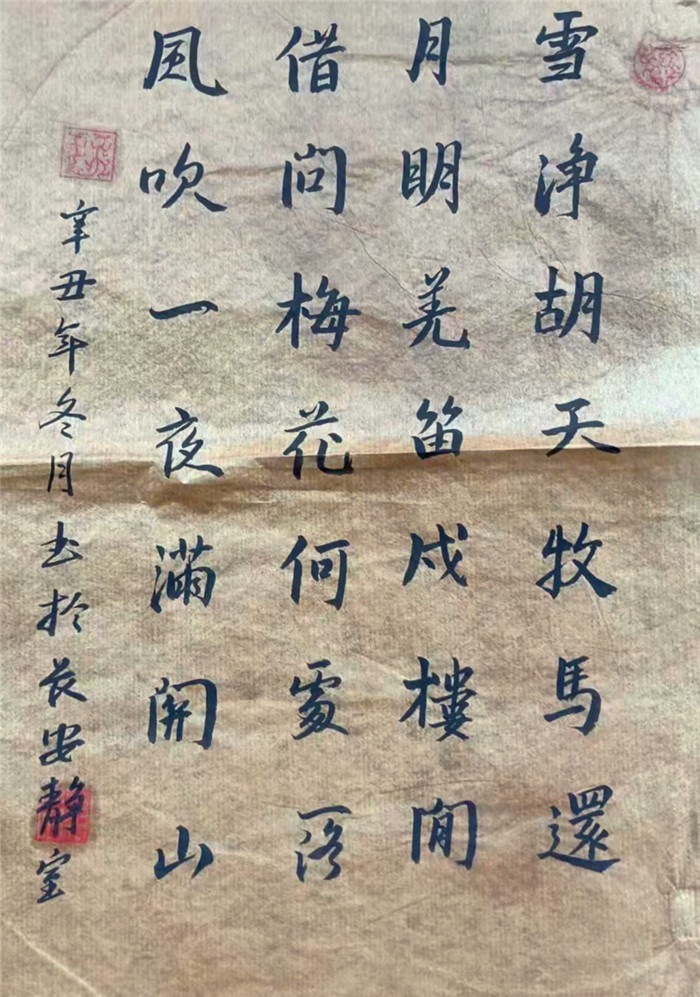 雪净胡天牧馬還
月明羌笛戍樓間
借问梅花何處落
風吹一夜滿関山
辛丑年冬月书於长安静室